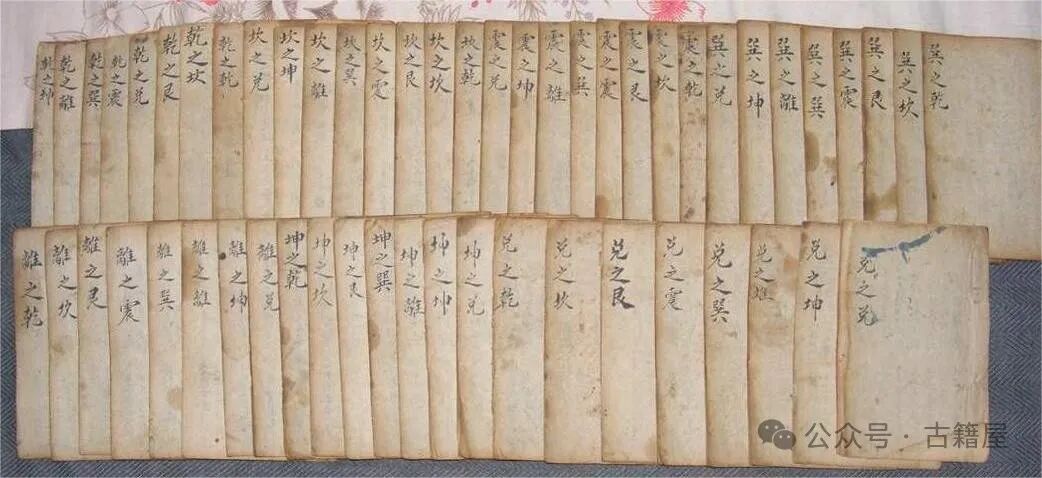 乾之坤
乾之離
乾之巽
乾之震
乾之兌
乾之艮
乾之坎
乾之乾
坎之兌
坎之坤
坎之離
坎之巽
坎之震
坎之艮
坎之坎
坎之乾
震之兌
震之坤
震之離
震之巽
震之震
震之艮
震之坎
震之乾
巽之兌
巽之坤
巽之離
巽之巽
巽之震
巽之艮
巽之坎
巽之乾
離之乾
離之坎
離之艮
離之震
離之巽
離之離
離之坤
離之兌
坤之乾
坤之坎
坤之艮
坤之巽
坤之離
坤之坤
坤之兌
兌之乾
兌之坎
兌之艮
兌之震
兌之巽
兌之離
兌之坤
兌之兌
公众号 · 古籍屋